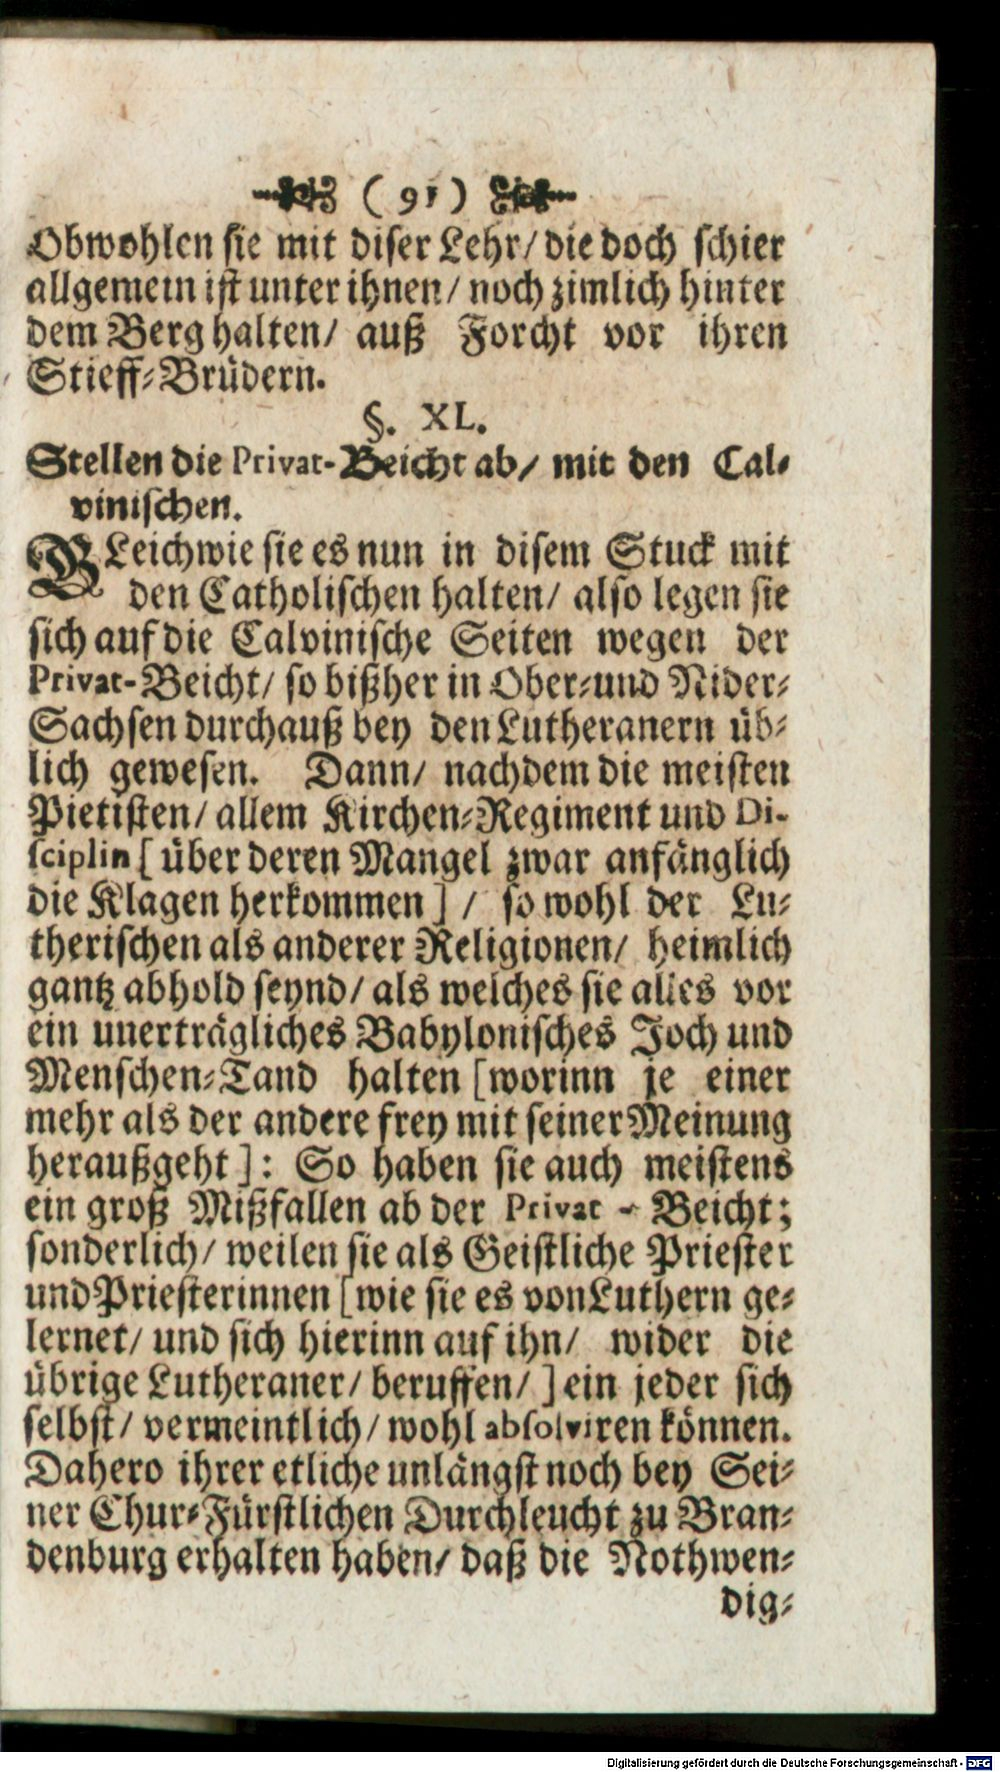 ( 91 )
Obwohlen sie mit diser Lehr/ die doch schier
allgemein ist unter ihnen/ noch zimlich hinter
dem Berg halten/ auß Forcht vor ihren
Stieff-Brüdern.
§. XL.
Stellen die Privat-Beicht ab/ mit den Cal-
vinischen.
GLeichwie sie es nun in disem Stuck mit
den Catholischen halten/ also legen sie
sich auf die Calvinische Seiten wegen der
Privat-Beicht/ so bißher in Ober-und Nider-
Sachsen durchauß bey den Lutheranern üb-
lich gewesen. Dann/ nachdem die meisten
Pietisten/ allem Kirchen-Regiment und Di-
sciplin [ über deren Mangel zwar anfänglich
die Klagen herkommen ] / so wohl der Lu-
therischen als anderer Religionen/ heimlich
gantz abhold seynd/ als welches sie alles vor
ein unerträgliches Babylonisches Joch und
Menschen-Tand halten [worinn je einer
mehr als der andere frey mit seiner Meinung
heraußgeht ]: So haben sie auch meistens
ein groß Mißfallen ab der Privat - Beicht;
sonderlich/ weilen sie als Geistliche Priester
und Priesterinnen [wie sie es von Luthern ge-
lernet/ und sich hierinn auf ihn/ wider die
übrige Lutheraner/ beruffen/ ] ein jeder sich
selbst/ vermeintlich/ wohl absolviren können.
Dahero ihrer etliche unlängst noch bey Sei-
ner Chur-Fürstlichen Durchleucht zu Bran-
denburg erhalten haben/ daß die Nothwen-
dig-
Digitalisierung gefördert durch die Deutsche Forschungsgemeinschaft - DFG